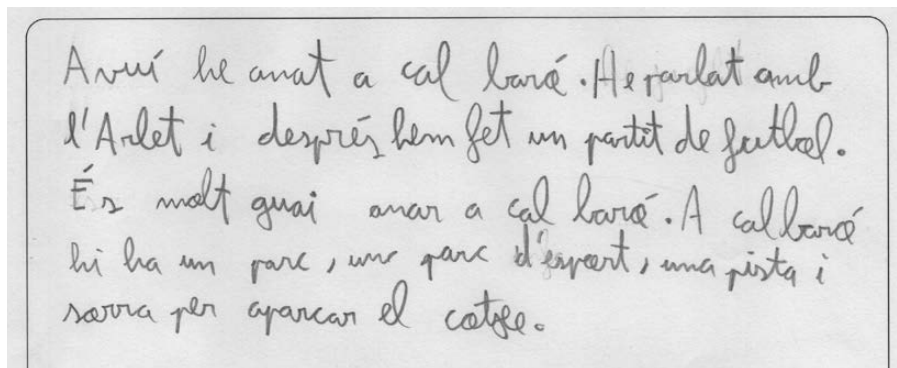 Avuí he anat a cal baró. He parlat amb
l'Arlet i després hem fet un partit de futbol.
És molt guai anar a cal baró. A cal baró
hi ha un parc, un parc d'esport, una pista i
sorra per aparcar el cotxe.